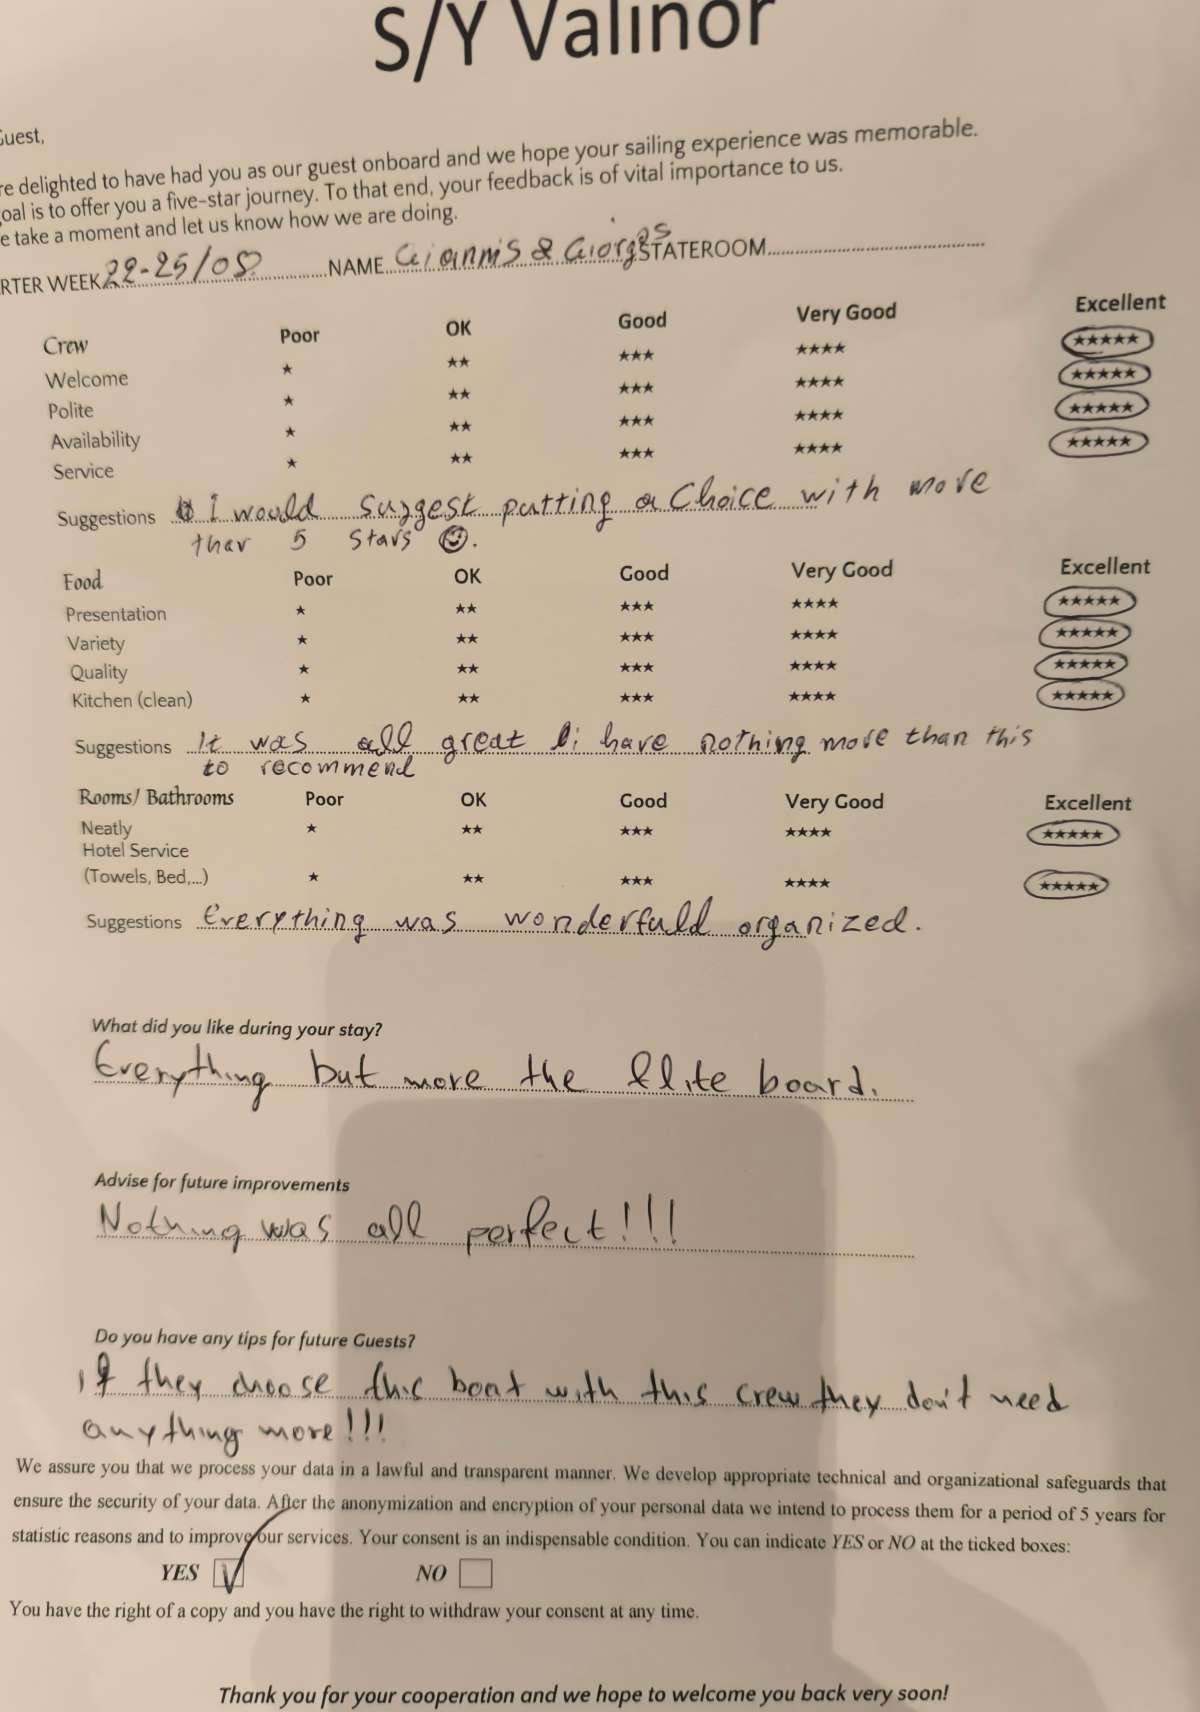 S/Y Valinor
Guest,
re delighted to have had you as our guest onboard and we hope your sailing experience was memorable.
goal is to offer you a five-star journey. To that end, your feedback is of vital importance to us.
e take a moment and let us know how we are doing.
RTER WEEK 22-25/08 NAME Giannis & Giorgos STATEROOM
Crew Poor OK Good Very Good Excellent
Welcome ★ ★★ ★★★ ★★★★ ★★★★★
Polite ★ ★★ ★★★ ★★★★ ★★★★★
Availability ★ ★★ ★★★ ★★★★ ★★★★★
Service ★ ★★ ★★★ ★★★★ ★★★★★
Suggestions I would suggest putting a Choice with more
than 5 stars ☺.
Food Poor OK Good Very Good Excellent
Presentation ★ ★★ ★★★ ★★★★ ★★★★★
Variety ★ ★★ ★★★ ★★★★ ★★★★★
Quality ★ ★★ ★★★ ★★★★ ★★★★★
Kitchen (clean) ★ ★★ ★★★ ★★★★ ★★★★★
Suggestions It was all great i have nothing more than this
to recommend
Rooms/ Bathrooms Poor OK Good Very Good Excellent
Neatly ★ ★★ ★★★ ★★★★ ★★★★★
Hotel Service
(Towels, Bed,...) ★ ★★ ★★★ ★★★★ ★★★★★
Suggestions Everything was wonderfuld organized.
What did you like during your stay?
Everything but more the flite board.
Advise for future improvements
Nothing was all perfect!!!
Do you have any tips for future Guests?
If they choose this boat with this crew they don't need
anything more!!!
We assure you that we process your data in a lawful and transparent manner. We develop appropriate technical and organizational safeguards that
ensure the security of your data. After the anonymization and encryption of your personal data we intend to process them for a period of 5 years for
statistic reasons and to improve our services. Your consent is an indispensable condition. You can indicate YES or NO at the ticked boxes:
YES ✓ NO
You have the right of a copy and you have the right to withdraw your consent at any time.
Thank you for your cooperation and we hope to welcome you back very soon!